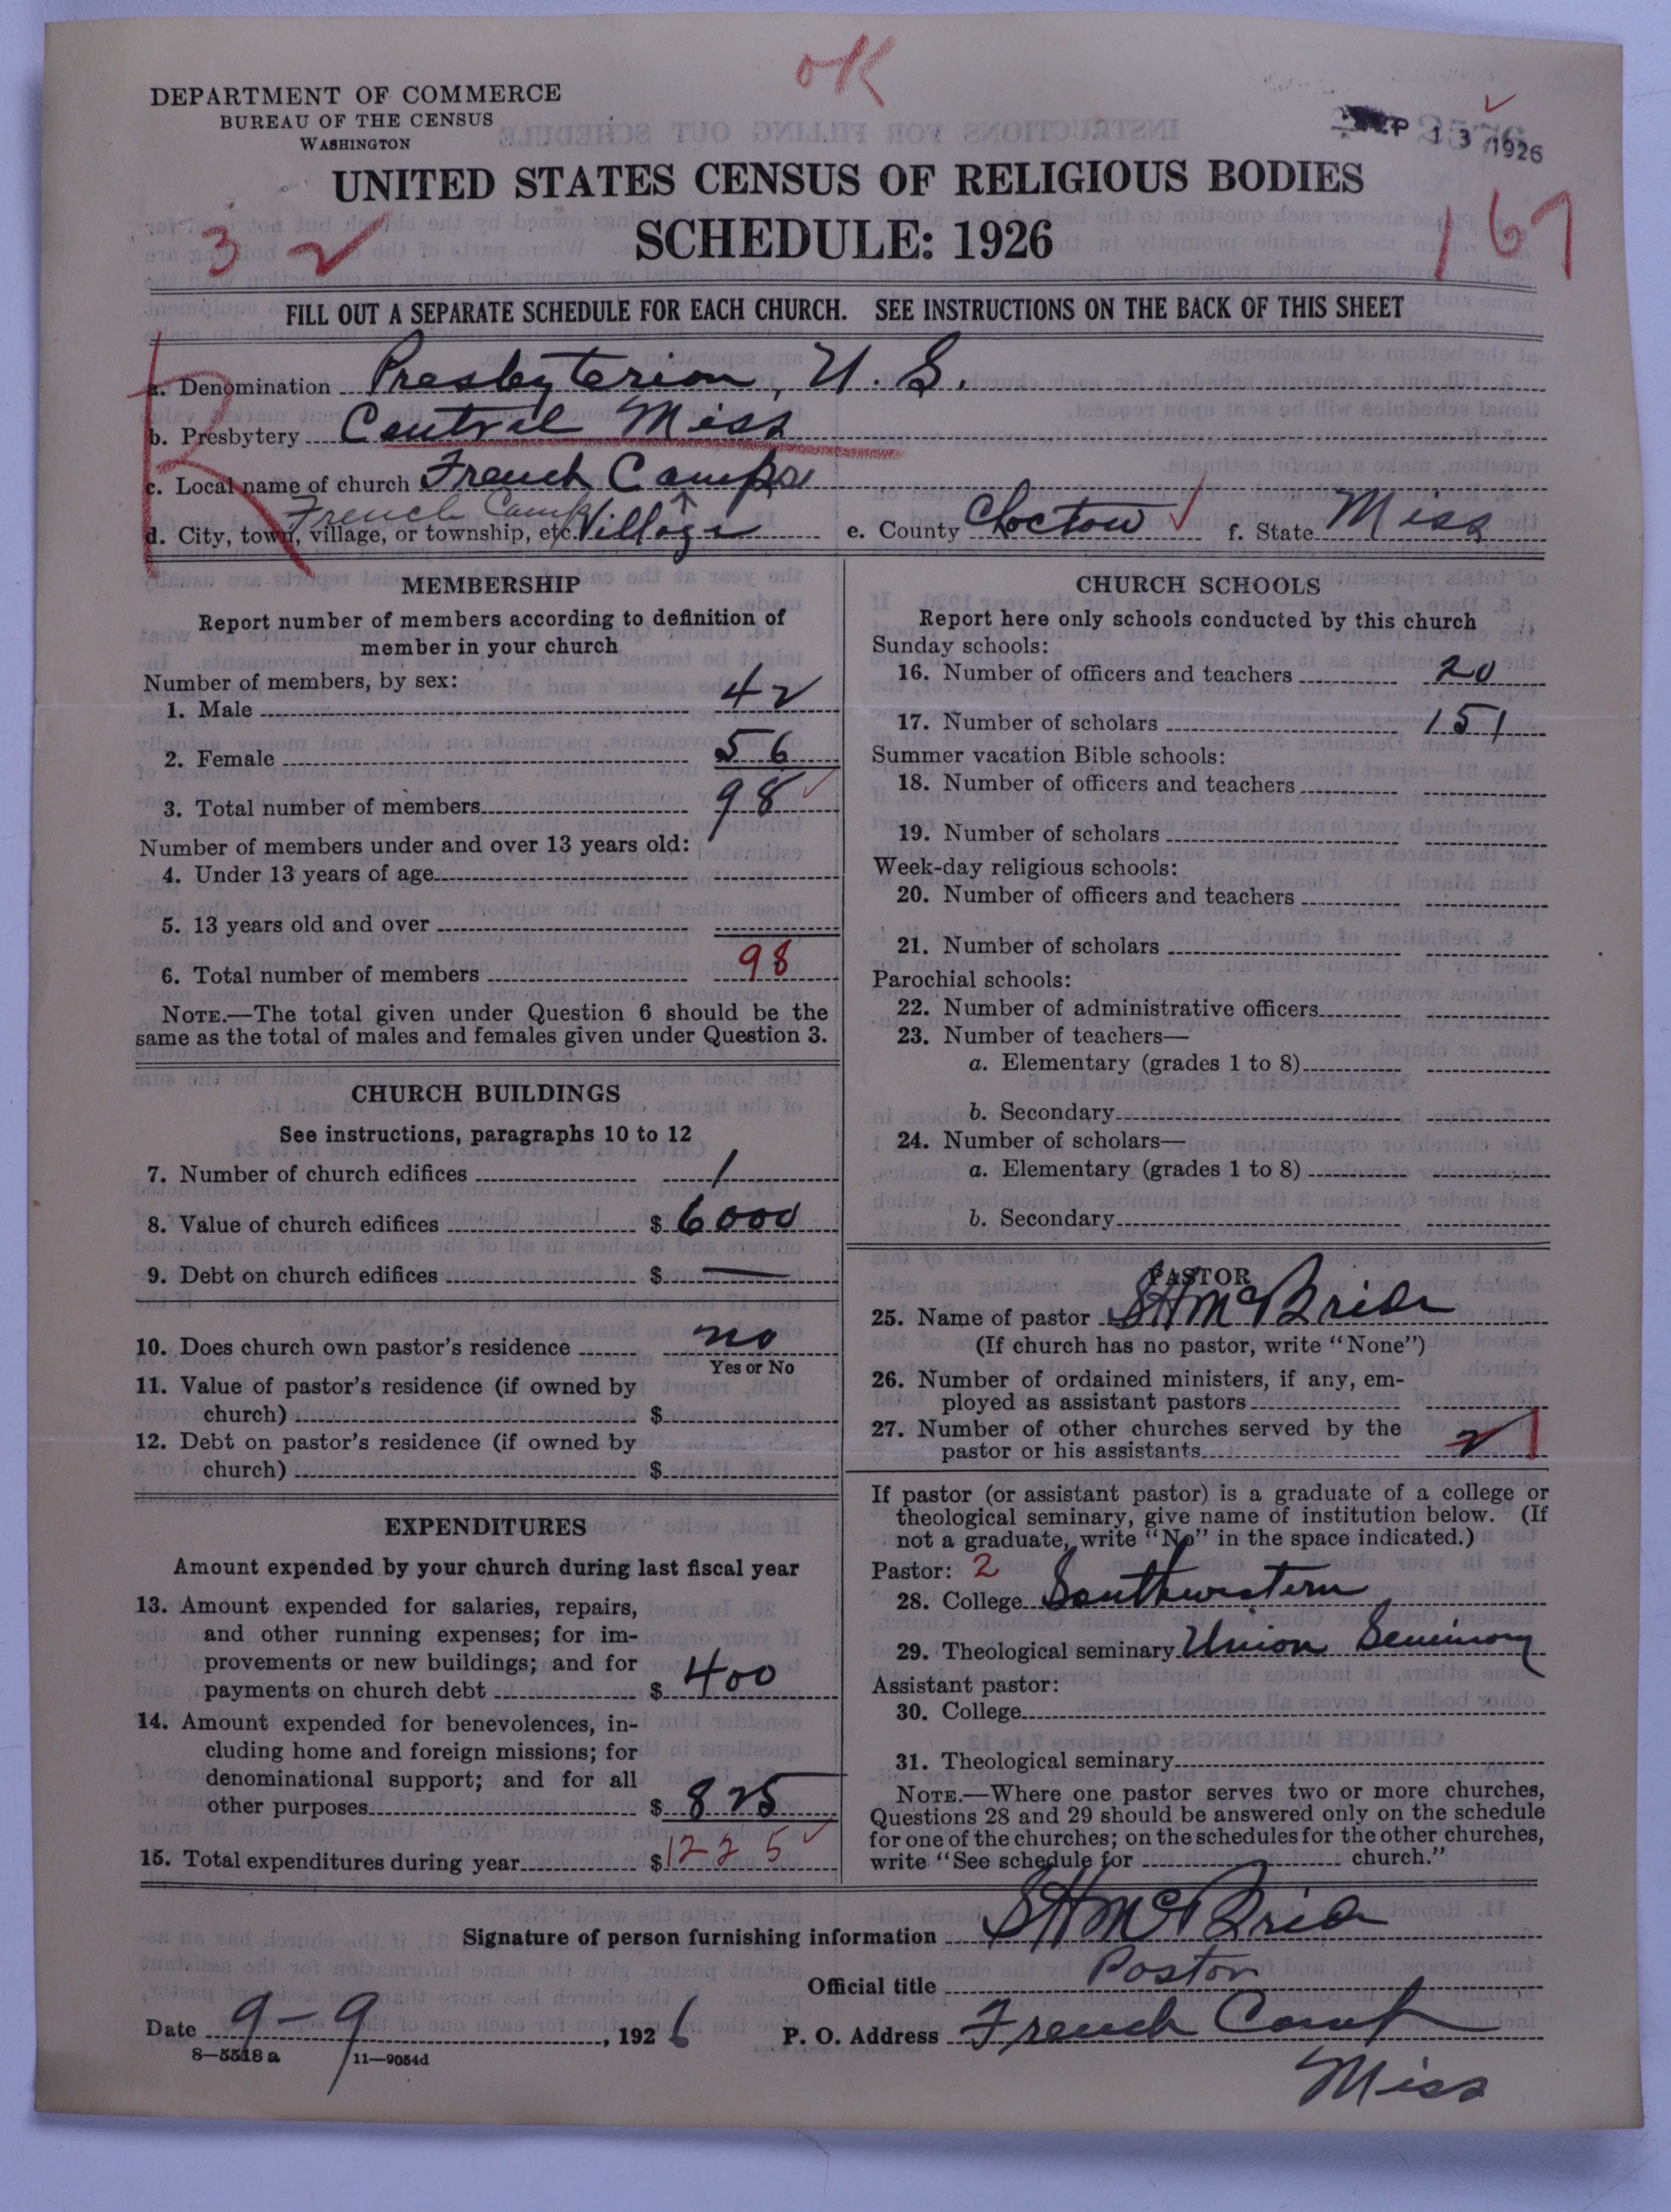 OK
DEPARTMENT OF COMMERCE
BUREAU OF THE CENSUS
WASHINGTON
SEP 13 1926
UNITED STATES CENSUS OF RELIGIOUS BODIES
SCHEDULE: 1926
3 2
167
FILL OUT A SEPARATE SCHEDULE FOR EACH CHURCH. SEE INSTRUCTIONS ON THE BACK OF THIS SHEET
a. Denomination Presbyterian, U. S.
b. Presbytery Central Miss
c. Local name of church French Camp
French Camp
d. City, town, village, or township, etc. Village e. County Choctow f. State Miss
MEMBERSHIP
Report number of members according to definition of
member in your church
Number of members, by sex:
1. Male 42
2. Female 56
3. Total number of members 98
Number of members under and over 13 years old:
4. Under 13 years of age
5. 13 years old and over
6. Total number of members 98
NOTE.—The total given under Question 6 should be the
same as the total of males and females given under Question 3.
CHURCH BUILDINGS
See instructions, paragraphs 10 to 12
7. Number of church edifices 1
8. Value of church edifices $ 6000
9. Debt on church edifices $ —
10. Does church own pastor's residence no
Yes or No
11. Value of pastor's residence (if owned by
church) $
12. Debt on pastor's residence (if owned by
church) $
EXPENDITURES
Amount expended by your church during last fiscal year
13. Amount expended for salaries, repairs,
and other running expenses; for im-
provements or new buildings; and for
payments on church debt $ 400
14. Amount expended for benevolences, in-
cluding home and foreign missions; for
denominational support; and for all
other purposes $ 825
15. Total expenditures during year $ 1225
CHURCH SCHOOLS
Report here only schools conducted by this church
Sunday schools:
16. Number of officers and teachers 20
17. Number of scholars 151
Summer vacation Bible schools:
18. Number of officers and teachers
19. Number of scholars
Week-day religious schools:
20. Number of officers and teachers
21. Number of scholars
Parochial schools:
22. Number of administrative officers
23. Number of teachers—
a. Elementary (grades 1 to 8)
b. Secondary
24. Number of scholars—
a. Elementary (grades 1 to 8)
b. Secondary
PASTOR
25. Name of pastor S H McBride
(If church has no pastor, write "None")
26. Number of ordained ministers, if any, em-
ployed as assistant pastors
27. Number of other churches served by the
pastor or his assistants 2
If pastor (or assistant pastor) is a graduate of a college or
theological seminary, give name of institution below. (If
not a graduate, write "No" in the space indicated.)
Pastor: 2
28. College Southwestern
29. Theological seminary Union Seminary
Assistant pastor:
30. College
31. Theological seminary
NOTE.—Where one pastor serves two or more churches,
Questions 28 and 29 should be answered only on the schedule
for one of the churches; on the schedules for the other churches,
write "See schedule for church."
Signature of person furnishing information S H McBride
Official title Pastor
Date 9-9, 1926 P. O. Address French Camp
Miss
8—5518 a 11—9054d